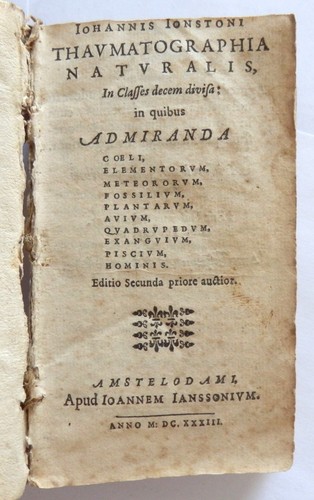 IOHANNIS IONSTONI
THAVMATOGRAPHIA
NATVRALIS,
In Classes decem divisa:
in quibus
ADMIRANDA
COELI,
ELEMENTORVM,
METEORORVM,
FOSSILIVM,
PLANTARVM,
AVIVM,
QVADRVPEDVM,
EXANGVIVM,
PISCIVM,
HOMINIS.
Editio Secunda priore auctior.
AMSTELODAMI,
Apud IOANNEM IANSSONIVM.
ANNO M: DC. XXXIII.